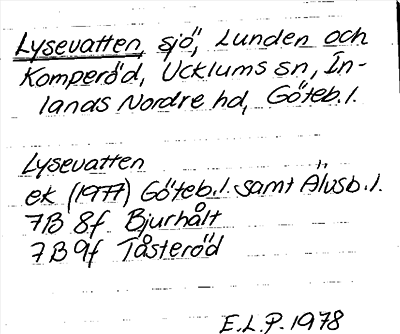 Lysevatten, sjö, Lunden och
Komperöd, Ucklums sn, In-
lands Nordre hd, Göteb. l.
Lysevatten
ek (1977) Göteb. l. samt Älvsb. l.
7B 8f Bjurhålt
7B 9f Tåsteröd
E.L.P. 1978